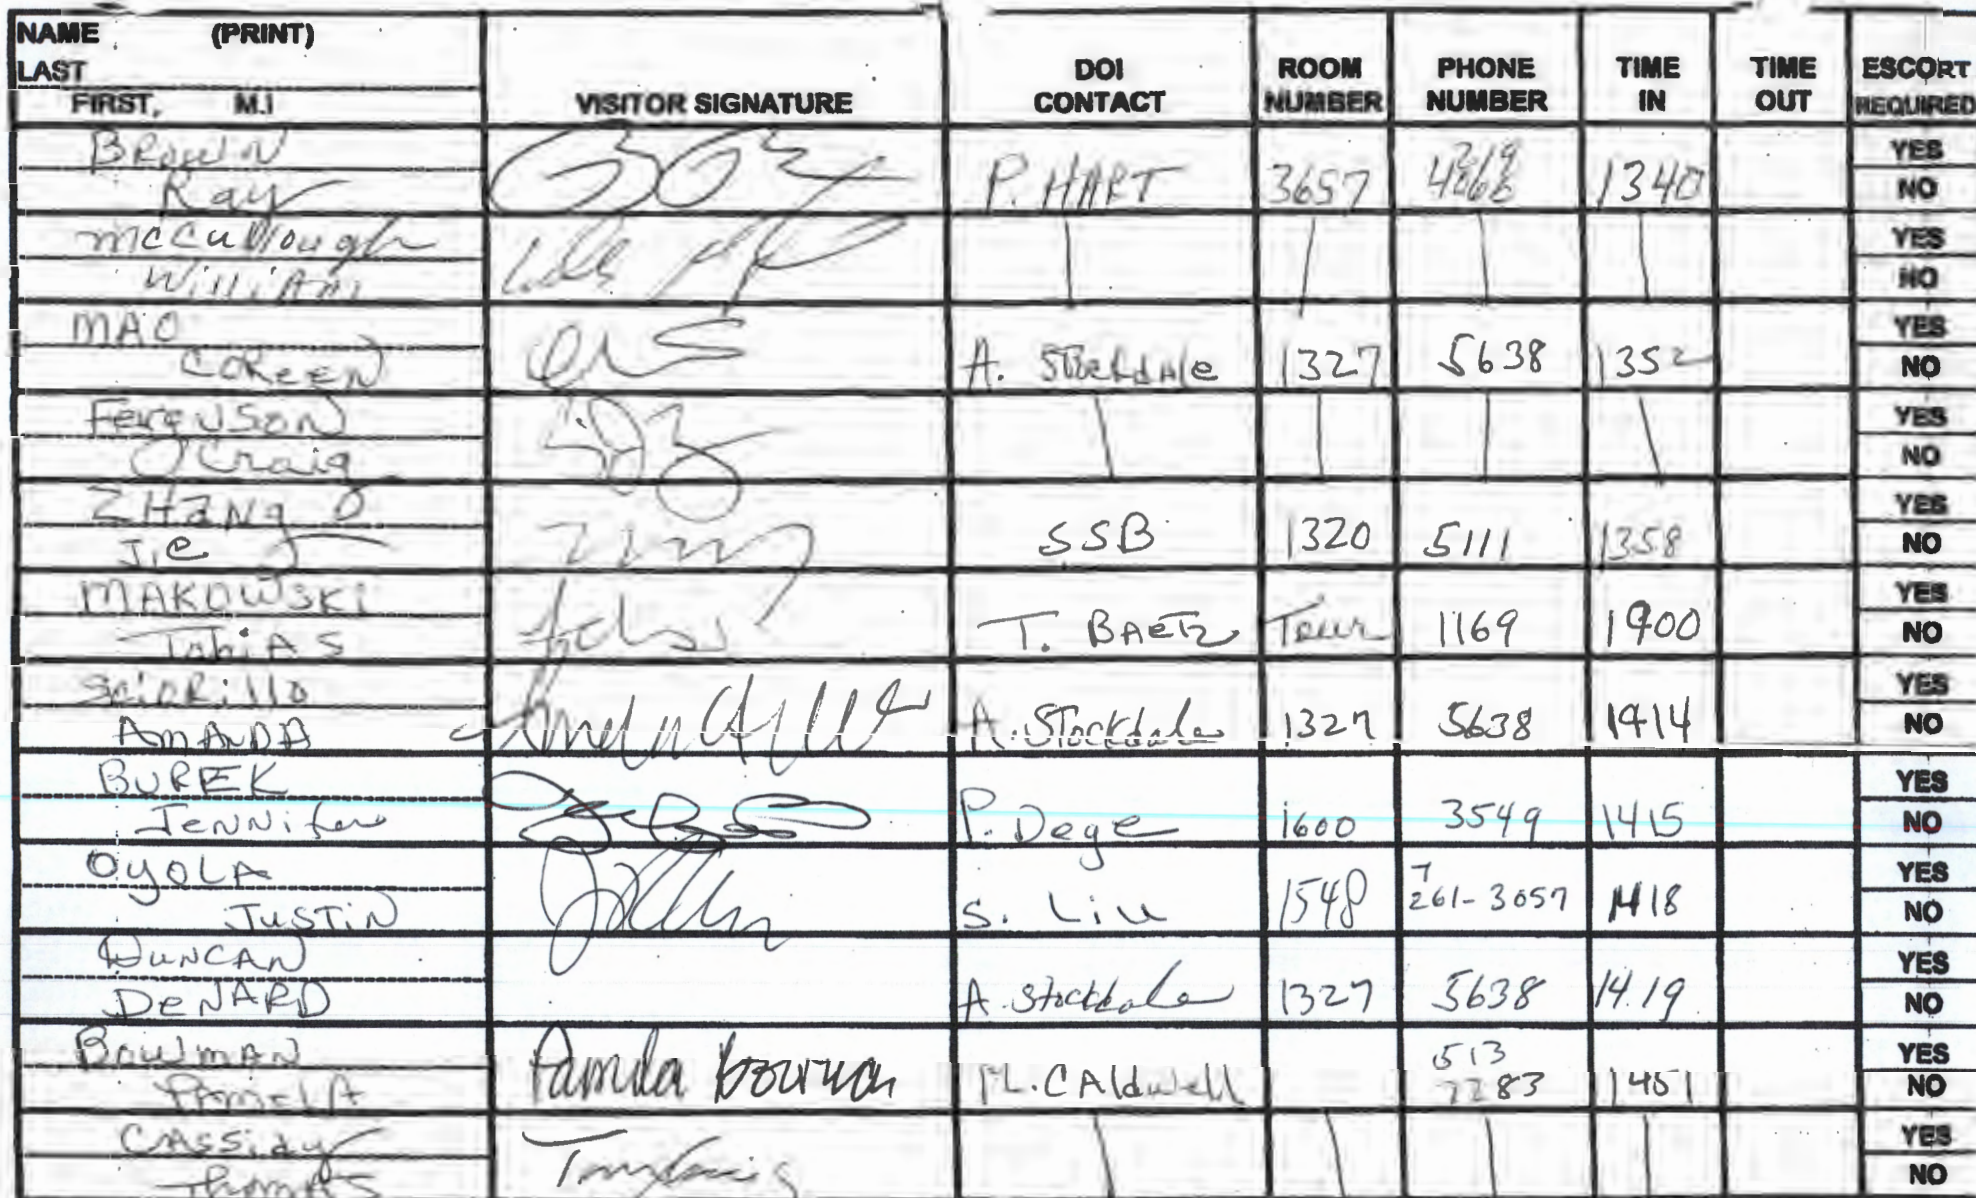 NAME (PRINT)
LAST
FIRST, M.I
VISITOR SIGNATURE
DOI CONTACT
ROOM NUMBER
PHONE NUMBER
TIME IN
TIME OUT
ESCORT REQUIRED
Brown
Ray
P. HART 3657 1340
YES
NO
McCullough
William
YES
NO
MAO
COREEN
A. Stockdale 1327 5638 1352
YES
NO
Ferguson
Craig
YES
NO
ZHang
Jie
SSB 1320 5111 1358
YES
NO
MAKOWSKI
TobiAS
T. BAETZ Tour 1169 1400
YES
NO
SciORillo
AMANDA
A. Stockdale 1327 5638 1414
YES
NO
BUREK
Jennifer
P. Dege 1600 3549 1415
YES
NO
OyOLA
JUSTIN
S. Liu 1548 261-3057 1418
YES
NO
DUNCAN
DeNARD
A. Stockdale 1327 5638 1419
YES
NO
BOWMAN
PAMELA
Pamela Bowman
M. CAldwell 513 7283 1451
YES
NO
CASSidy
Thomas
YES
NO